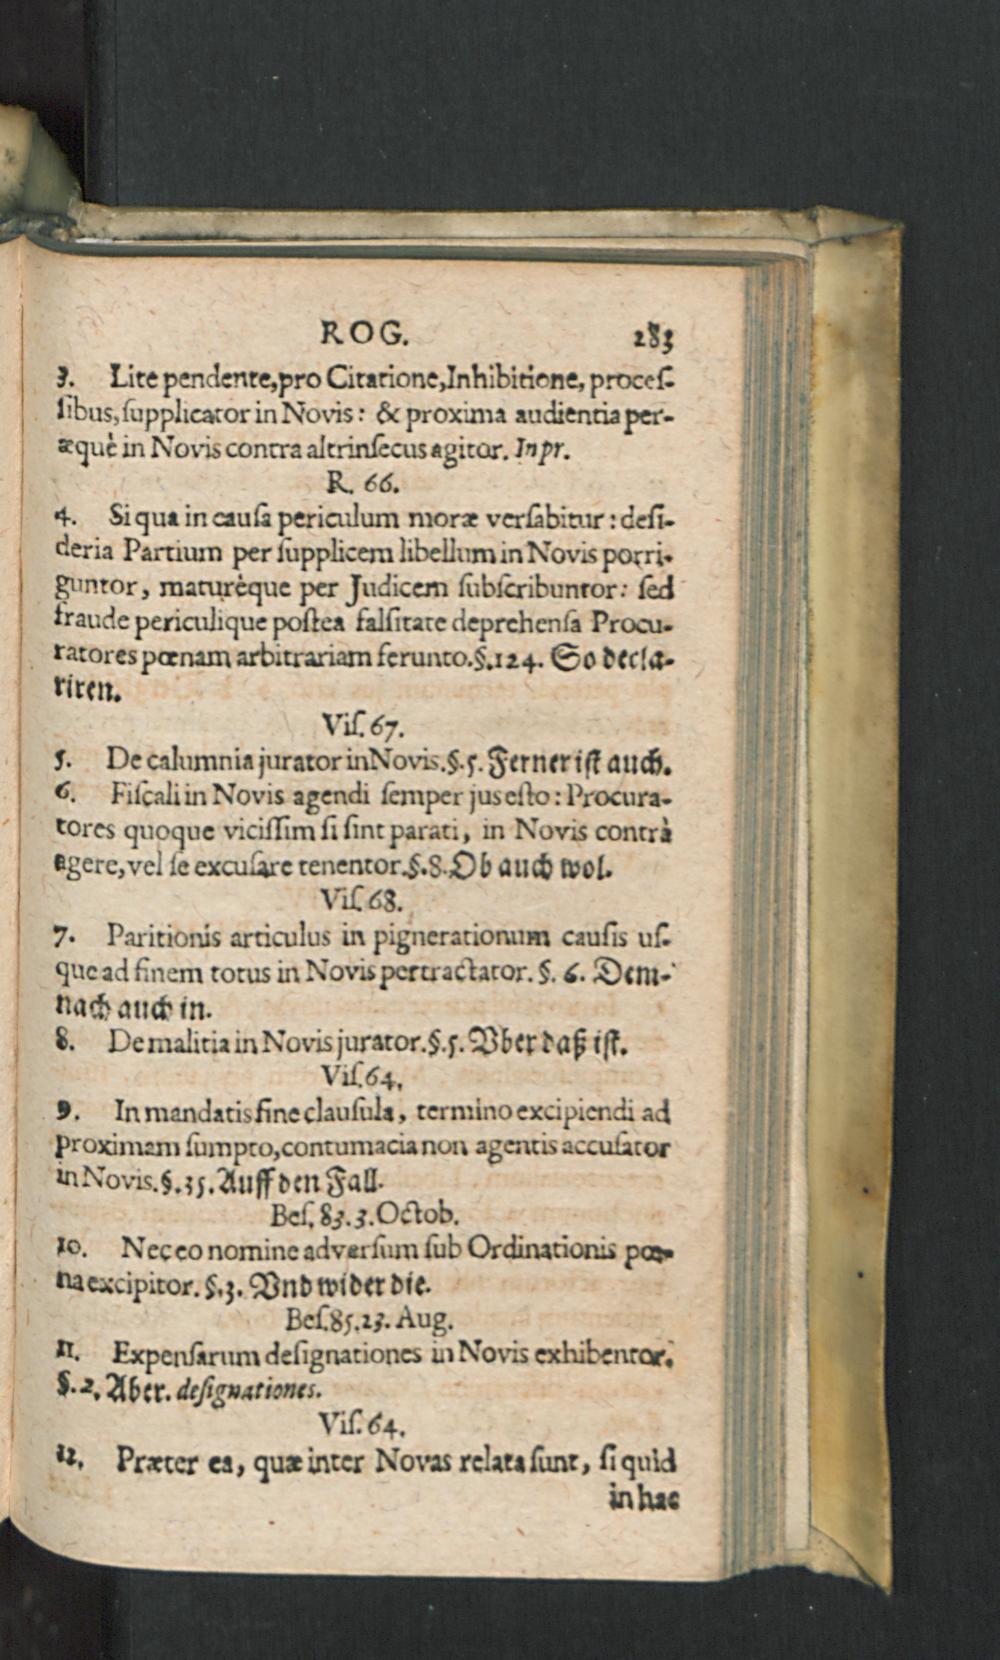 ROG. 283
3. Lite pendente,pro Citatione,Inhibitione, proceſ-
ſibus,ſupplicator in Novis: & proxima audientia per-
æquè in Novis contra altrinſecus agitor. In pr.
R. 66.
4. Si qua in cauſa periculum moræ verſabitur: deſi-
deria Partium per ſupplicem libellum in Novis porri-
guntor, maturèque per Judicem ſubſcribuntor: ſed
fraude periculique poſtea falſitate deprehenſa Procu-
ratores pœnam arbitrariam ferunto.§.124. So decla-
riren.
Viſ.67.
5. De calumnia jurator in Novis.§.5. Ferner iſt auch.
6. Fiſcali in Novis agendi ſemper jus eſto: Procura-
tores quoque viciſſim ſi ſint parati, in Novis contrà
agere,vel ſe excuſare tenentor.§.8. Ob auch wol.
Viſ.68.
7. Paritionis articulus in pignerationum cauſis uſ-
que ad finem totus in Novis pertractator. §. 6. Dem-
nach auch in.
8. De malitia in Novis jurator.§.5. Vber daß iſt.
Viſ.64.
9. In mandatis ſine clauſula, termino excipiendi ad
proximam ſumpto,contumacia non agentis accuſator
in Novis.§.35. Auff den Fall.
Beſ. 83.3. Octob.
10. Nec eo nomine adverſum ſub Ordinationis pœ-
na excipitor. §.3. Vnd wider die.
Beſ.85.23. Aug.
11. Expenſarum deſignationes in Novis exhibentor.
§.2. Aber. deſignationes.
Viſ.64.
12. Præter ea, quæ inter Novas relata ſunt, ſi quid
in hac